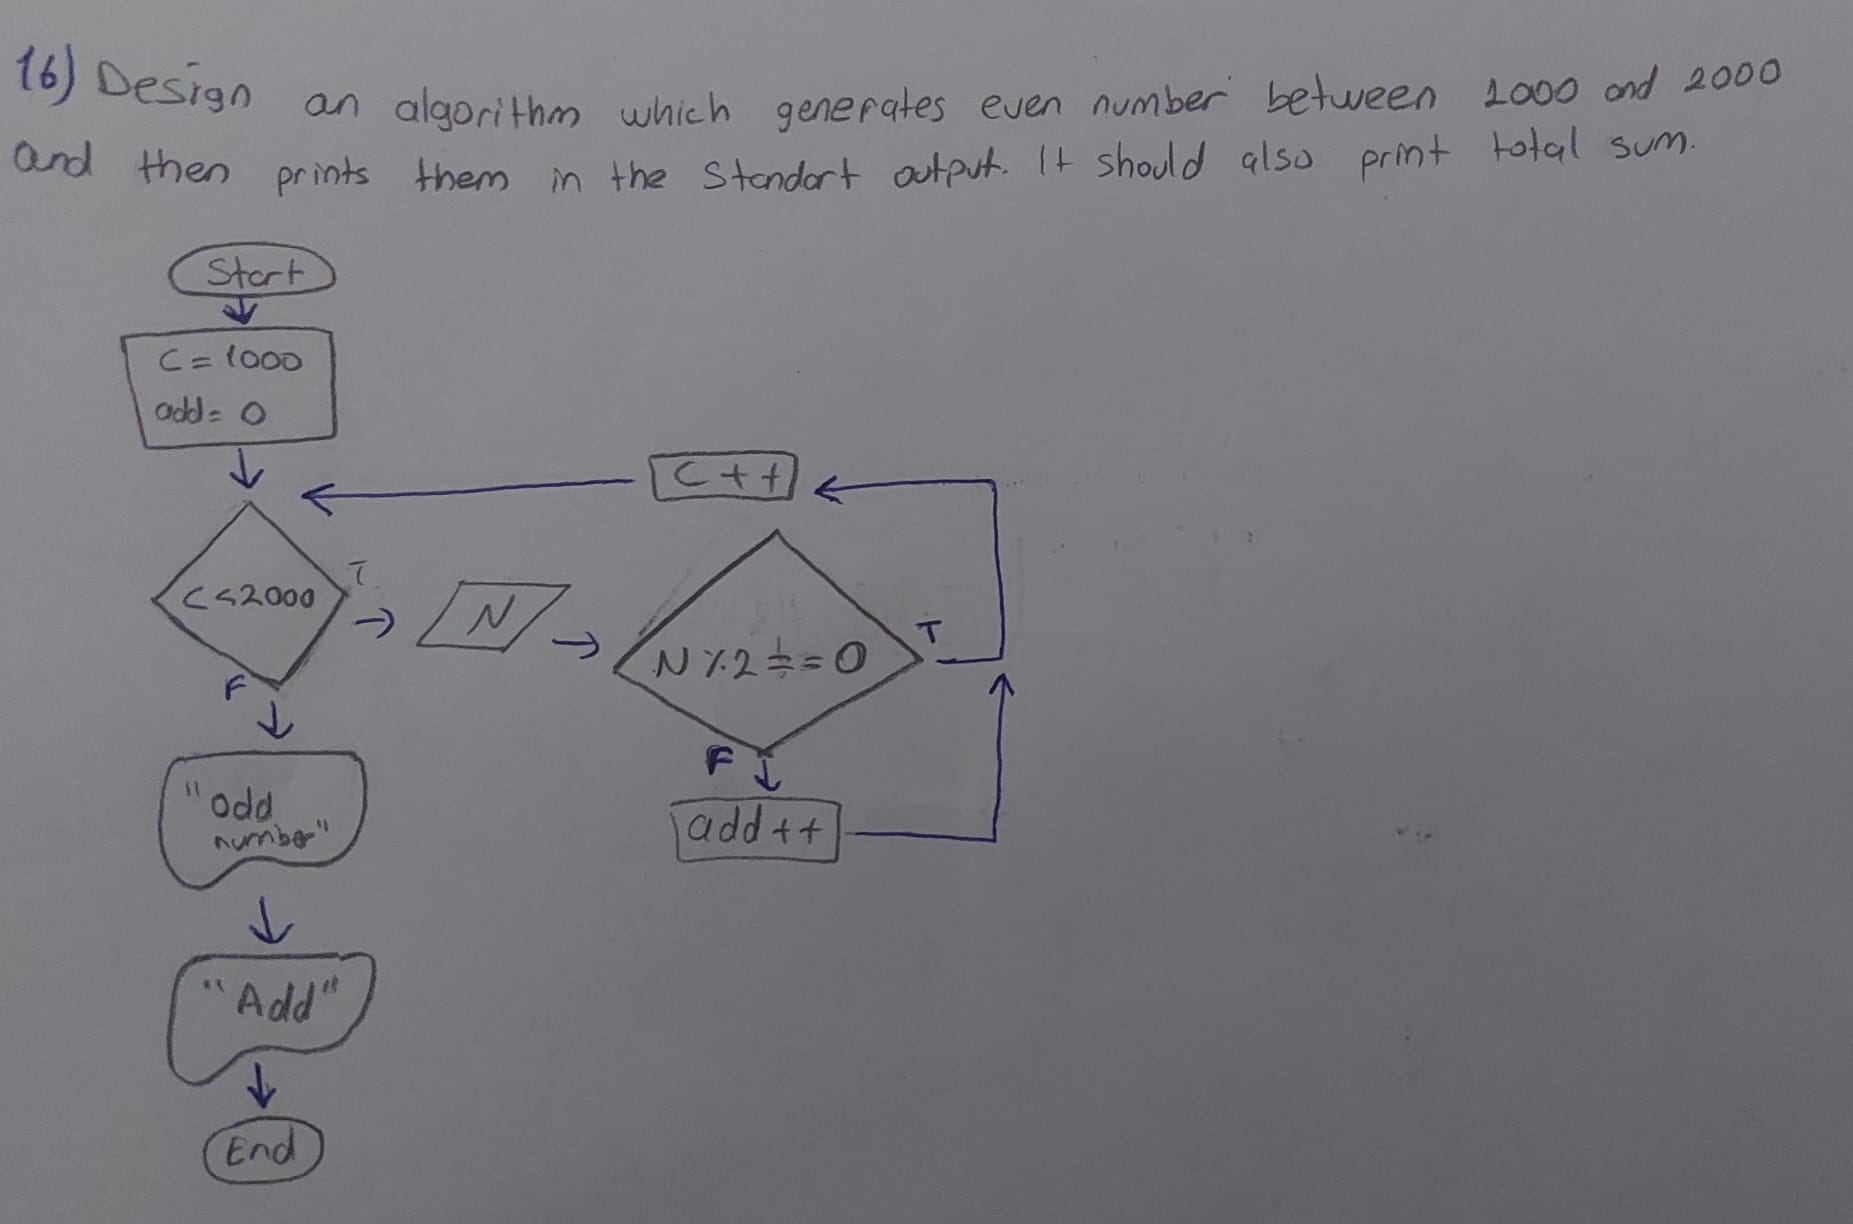 16) Design an algorithm which generates even number between 1000 and 2000
and then prints them in the Standart output. It should also print total sum.
Start
C = 1000
add = 0
C++
C<2000
T
N
N % 2 ≠ = 0
T
F
F
add ++
"odd
number"
"Add"
End